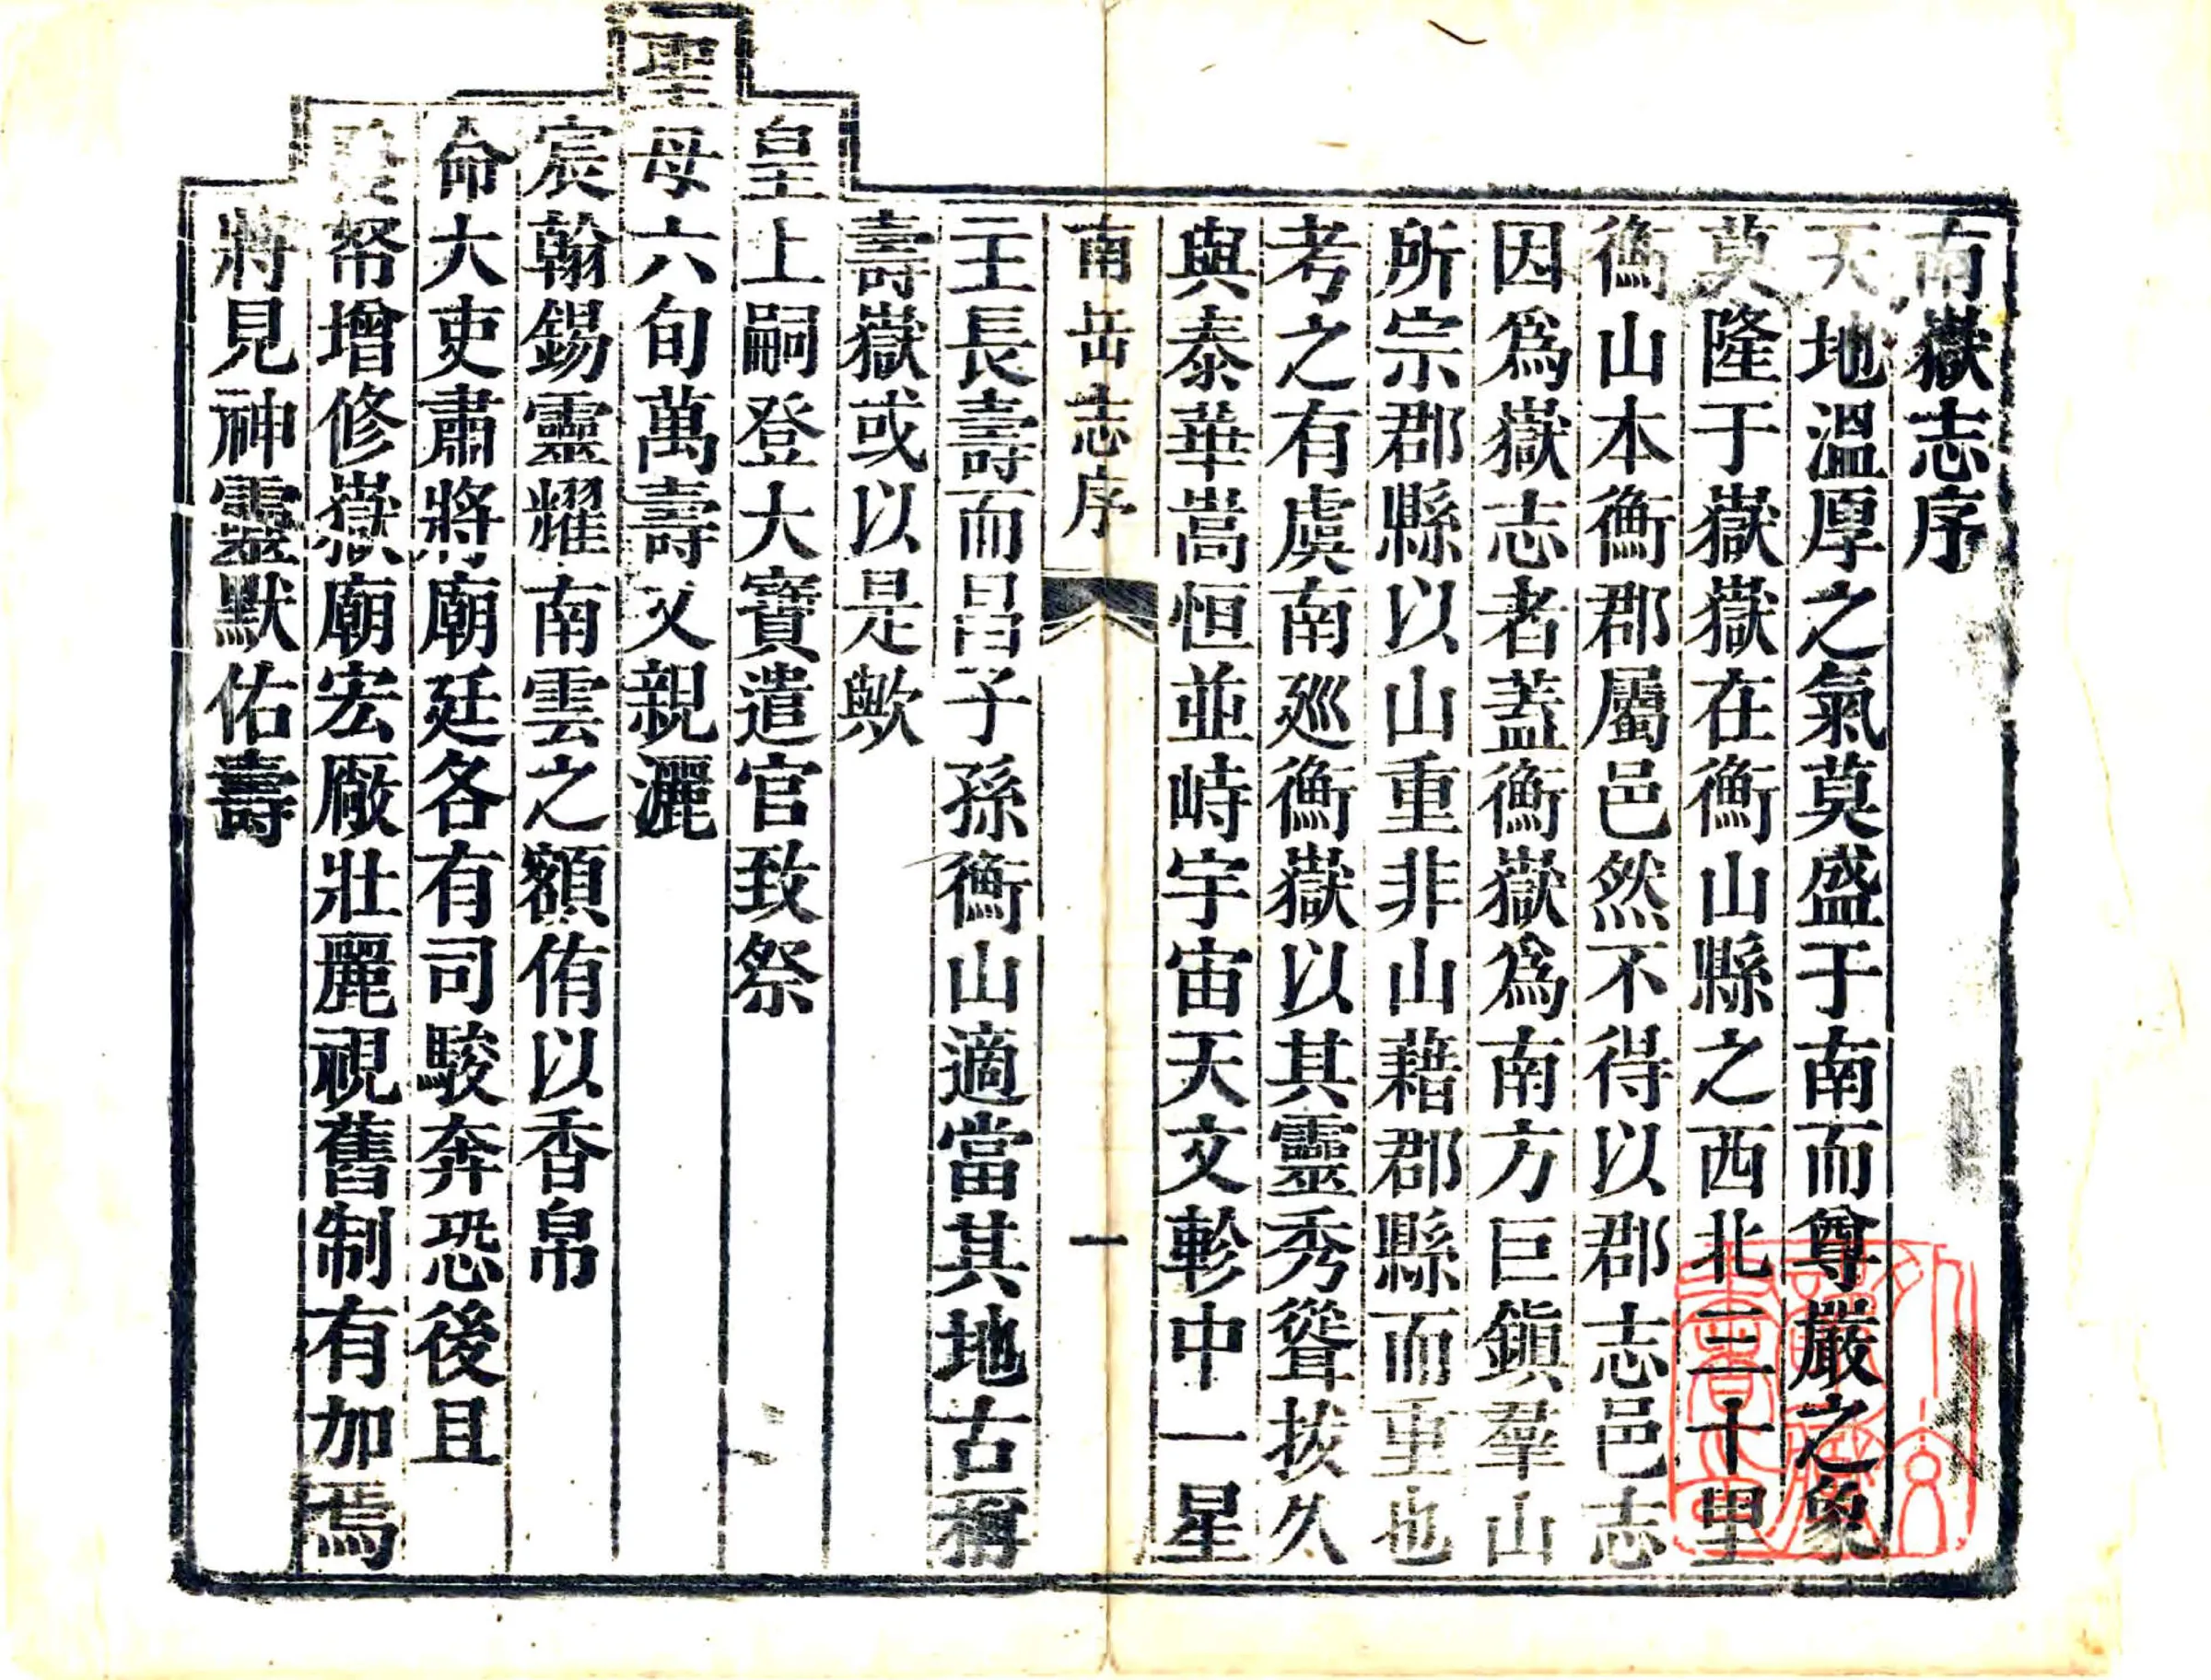 南嶽志序
天地溫厚之氣莫盛于南而尊嚴之象
莫隆于嶽嶽在衡山縣之西北三十里
衡山本衡郡屬邑然不得以郡志邑志
因爲嶽志者蓋衡嶽爲南方巨鎭羣山
所宗郡縣以山重非山藉郡縣而重也
考之有虞南廵衡嶽以其靈秀聳拔久
與泰華嵩恒並峙宇宙天文軫中一星
南岳志序
一
主長壽而昌子孫衡山適當其地古稱
壽嶽或以是歟
皇上嗣登大寶遣官致祭
聖母六旬萬壽又親灑
宸翰錫靈耀南雲之額侑以香帛
命大吏肅將廟廷各有司駿奔恐後且
帑增修嶽廟宏厰壯麗視舊制有加焉
將見神靈默佑壽